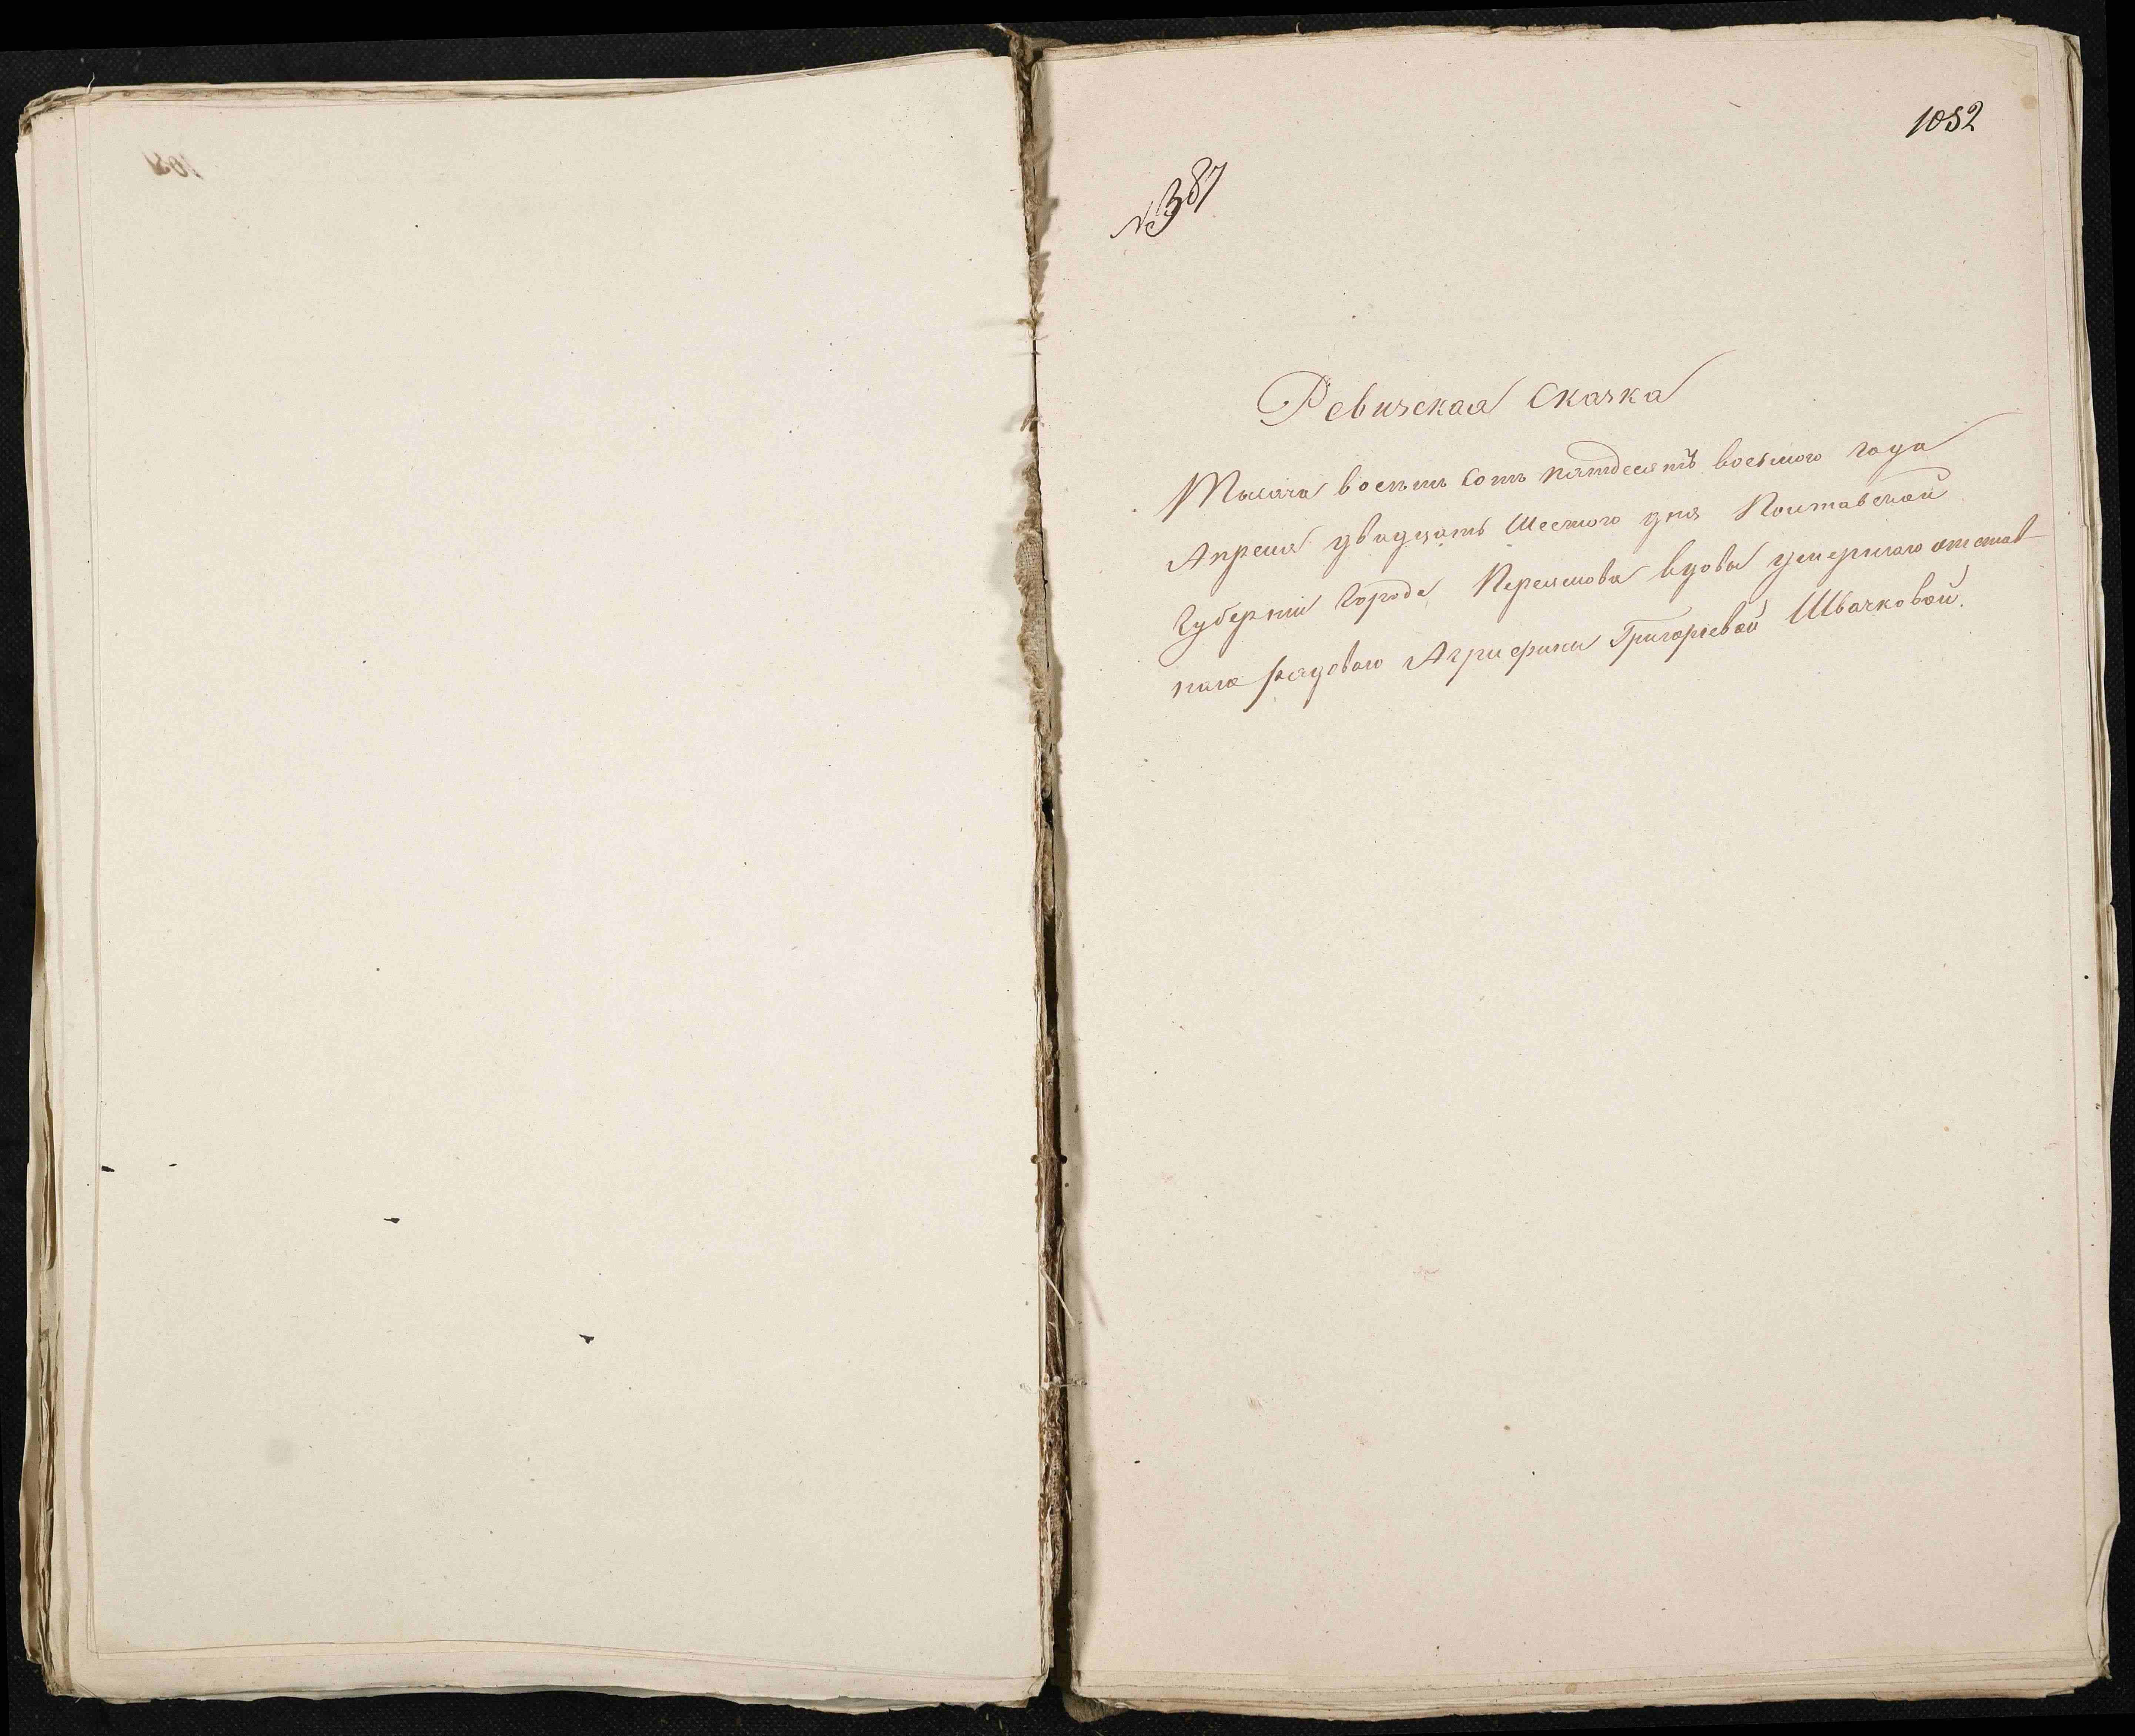 1052
№ 387
Ревизская Сказка
Тысяча восемь сотъ пятдесятъ восьмого года
Апреля двадцать Шестого дня Полтавской
Губерніи Города Переяслова вдовы умершаго отстав-
наго рядоваго Агрифины Григорьевой Швачковой.